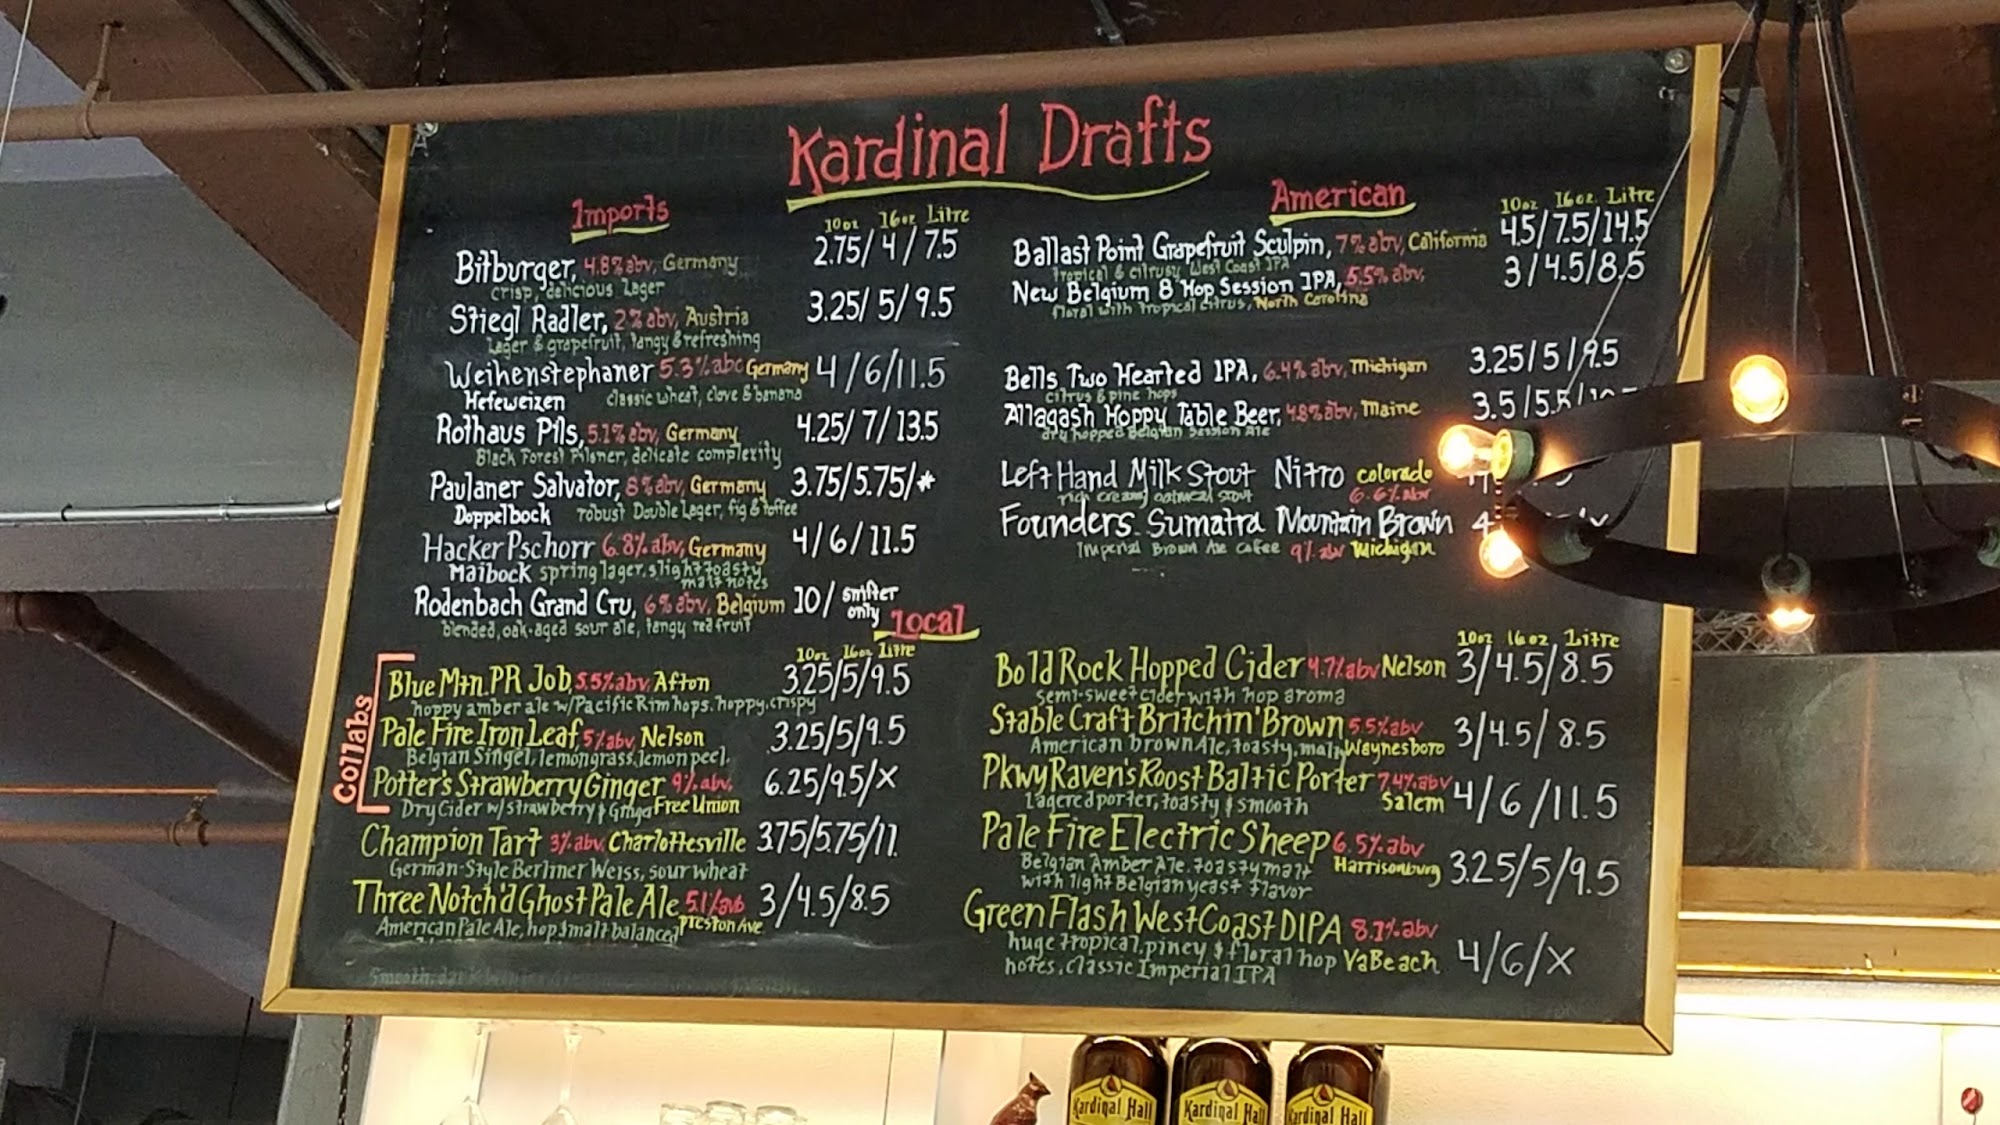 Kardinal Drafts
Imports
10oz 16oz Litre
Bitburger, 4.8% abv, Germany 2.75/ 4 / 7.5
crisp, delicious Lager
Stiegl Radler, 2% abv, Austria 3.25/ 5/ 9.5
Lager & grapefruit, tangy & refreshing
Weihenstephaner 5.3% abc Germany 4/6/11.5
Hefeweizen classic wheat, clove & banana
Rothaus Pils, 5.1% abv, Germany 4.25/ 7/ 13.5
Black Forest Pilsner, delicate complexity
Paulaner Salvator, 8% abv, Germany 3.75/5.75/*
Doppelbock robust Double Lager, fig & toffee
Hacker Pschorr 6.8% abv, Germany 4/6/11.5
Maibock spring lager. slight toasty
malt notes
Rodenbach Grand Cru, 6% abv, Belgium 10/ snifter
only
blended, oak-aged sour ale, tangy red fruit
American
10oz 16oz. Litre
Ballast Point Grapefruit Sculpin, 7% abv, California 4.5/7.5/14.5
Tropical & citrusy West Coast IPA
New Belgium 8 Hop Session IPA, 5.5% abv, 3/4.5/8.5
floral with tropical citrus, North Carolina
Bells Two Hearted IPA, 6.4% abv, Michigan 3.25/5/9.5
citrus & pine hops
Allagash Hoppy Table Beer, 4.8% abv, Maine 3.5/5.5/
dry hopped Belgian Session Ale
Left Hand Milk Stout Nitro colorado
rich creamy oatmeal stout 6.6% abv
Founders Sumatra Mountain Brown 4
Imperial Brown Ale Cofee 9% abv Michigan
Local
10oz 16oz Litre
Collabs
Blue Mtn. PR Job, 5.5% abv, Afton 3.25/5/9.5
hoppy amber ale w/Pacific Rim hops. hoppy, crispy
Pale Fire Iron Leaf, 5% abv, Nelson 3.25/5/9.5
Belgian Singel, lemongrass, lemon peel.
Potter's Strawberry Ginger 9% abv. 6.25/9.5/X
Dry Cider w/strawberry & Ginger Free Union
Champion Tart 3% abv, Charlottesville 3.75/5.75/11.
German-Style Berliner Weiss, sour wheat
Three Notch'd Ghost Pale Ale 5.1% avb 3/4.5/8.5
American Pale Ale, hop & malt balanced Preston Ave
Smooth, dark
10oz 16oz Litre
Bold Rock Hopped Cider 4.7% abv Nelson 3/4.5/8.5
semi-sweet cider with hop aroma
Stable Craft Britchin' Brown 5.5% abv 3/4.5/ 8.5
American brown Ale, toasty, malty Waynesboro
Pkwy Raven's Roost Baltic Porter 7.4% abv 4/6/11.5
Lagered porter, toasty & smooth Salem
Pale Fire Electric Sheep 6.5% abv 3.25/5/9.5
Belgian Amber Ale. toasty malt Harrisonburg
with light Belgian yeast flavor
Green Flash West Coast DIPA 8.1% abv 4/6/X
huge tropical, piney, & floral hop VaBeach
notes. classic Imperial IPA
Kardinal Hall
Kardinal Hall
Kardinal Hall